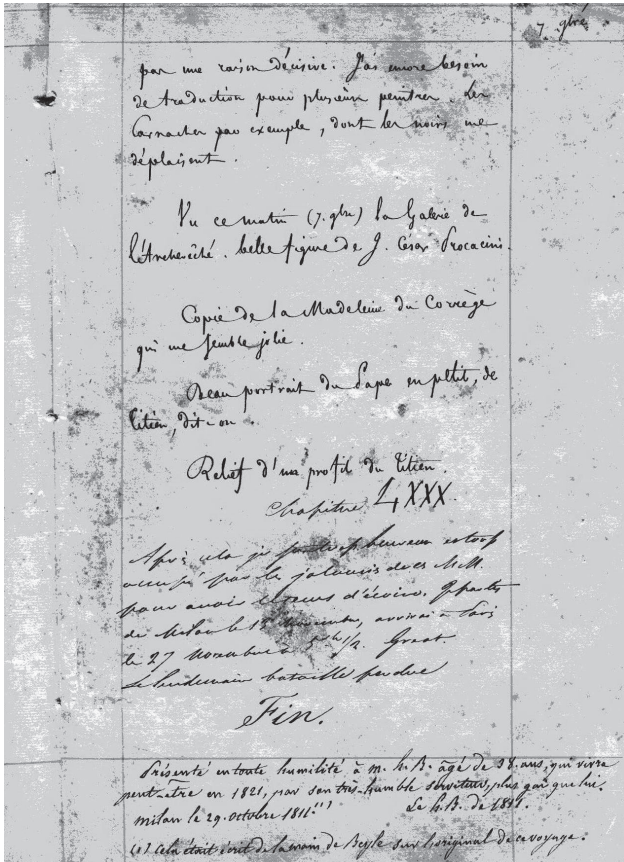 7. gbre
par une raison décisive. J'ai encore besoin
de traduction pour plusieurs peintres. Les
Carraches par exemple, dont les noirs me
déplaisent.
Vu ce matin (7. gbre) la Galerie de
l'Archevêché. belle figure de J. César Procacini.
Copie de la Madeleine du Corrège
qui me semble jolie.
Beau portrait du Pape en petit, de
Titien, dit-on.
Relief d'un profil du Titien.
Chapitre LXXX.
Après cela je fus trop heureux et trop
occupé par la jalousie de
pour avoir le tems d'écrire. Je partis
de Milan le 13 Novembre, arrivai à Paris
le 27 Novembre à 5 h 1/2. Great.
Le lendemain bataille perdue
Fin.
Présenté en toute humilité à m. h. B. âgé de 38 ans, qui vivra
peut-être en 1821, par son très-humble serviteur, plus gai que lui.
Le h. B. de 1811.
milan le 29. octobre 1811. (1)
(1) Cela était écrit de la main de Beyle sur l'original de ce voyage.